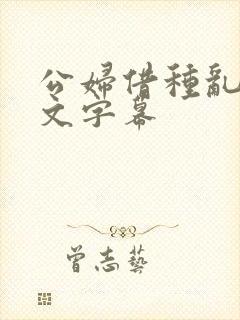 公婦借種亂
文字幕
曾志藝